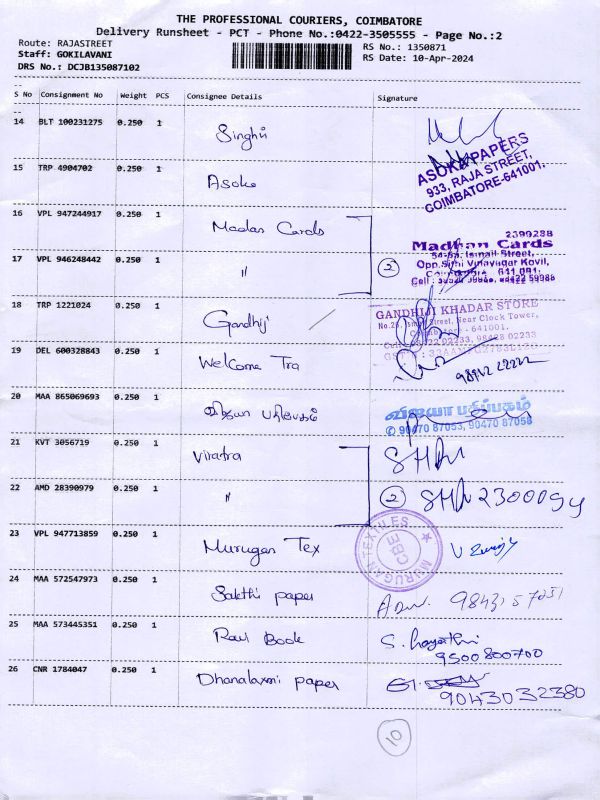 THE PROFESSIONAL COURIERS, COIMBATORE
Delivery Runsheet - PCT - Phone No.:0422-3505555 - Page No.:2
Route: RAJASTREET
Staff: GOKILAVANI
DRS No.: DCJB135087102
RS No.: 1350871
RS Date: 10-Apr-2024
S No Consignment No Weight PCS Consignee Details Signature
14 BLT 100231275 0.250 1 Singhvi
ASOKA PAPERS
933, RAJA STREET,
COIMBATORE-641001.
15 TRP 4904702 0.250 1 Asoka
16 VPL 947244917 0.250 1 Madan Cards
2399288
Madhan Cards
54-59, Ismail Street,
Opp.Sithi Vinayagar Kovil,
17 VPL 946248442 0.250 1 "
2
18 TRP 1221024 0.250 1 Gandhiji
GANDHIJI KHADAR STORE
Street, Near Clock Tower,
- 641001.
19 DEL 600328843 0.250 1 Welcome Tra
98942 22222
20 MAA 865069693 0.250 1 விஜயா பதிப்பகம்
விஜயா பதிப்பகம்
90470 87053, 90470 87058
21 KVT 3056719 0.250 1 Viratra
22 AMD 28390979 0.250 1 "
2
2300094
23 VPL 947713859 0.250 1 Murugan Tex
MURUGAN TEXTILES
CBE
24 MAA 572547973 0.250 1 Sakthi paper
25 MAA 573445351 0.250 1 Ravi Book
9500800700
26 CNR 1784047 0.250 1 Dhanalaxmi paper
9043032380
10